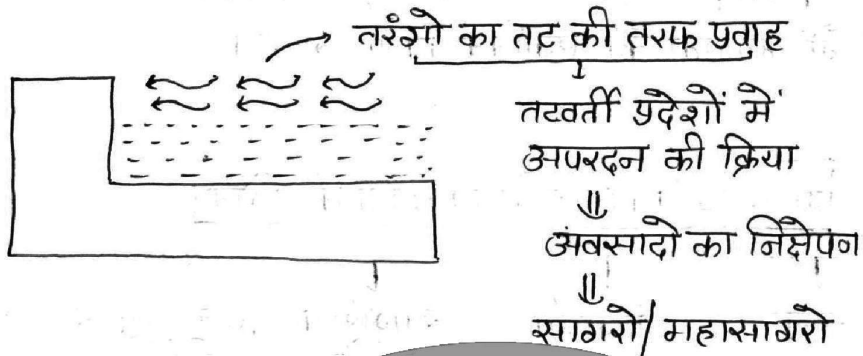 तरंगो का तट की तरफ प्रवाह
तटवर्ती प्रदेशों में
अपरदन की क्रिया
अवसादो का निक्षेपण
सागरो/महासागरो